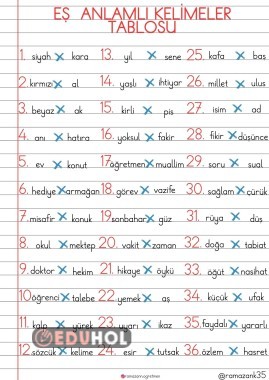 EŞ ANLAMLI KELİMELER
TABLOSU
1. siyah x kara 13. yıl x sene 25. kafa x baş
2. kırmızı x al 14. yaşlı x ihtiyar 26. millet x ulus
3. beyaz x ak 15. kirli x pis 27. isim x ad
4. anı x hatıra 16. yoksul x fakir 28. fikir x düşünce
5. ev x konut 17öğretmen x muallim 29. soru x sual
6. hediye x armağan 18. görev x vazife 30. sağlam x çürük
7. misafir x konuk 19sonbahar x güz 31. rüya x düş
8. okul x mektep 20. vakit x zaman 32. doğa x tabiat
9. doktor x hekim 21. hikaye x öykü 33. öğüt x nasihat
10öğrenci x talebe 22. yemek x aş 34. küçük x ufak
11. kalp x yürek 23. uyarı x ikaz 35. faydalı x yararlı
12. sözcük x kelime 24. esir x tutsak 36. özlem x hasret
EDUHOL
ramazanogretmen
@ramazank35